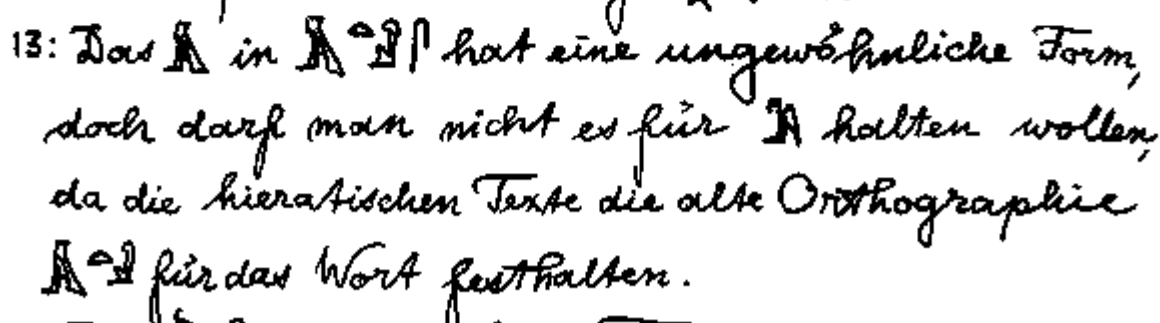 13: Das in hat eine ungewöhnliche Form,
doch darf man nicht es für halten wollen,
da die hieratischen Texte die alte Orthographie
für das Wort festhalten.